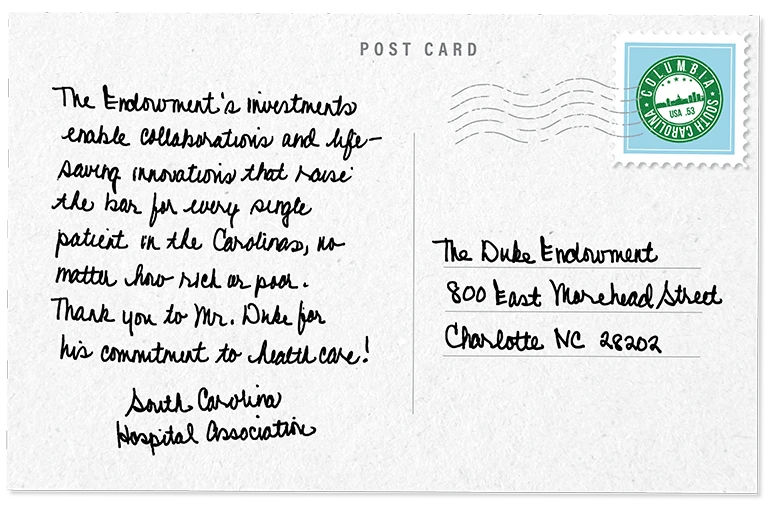 POST CARD
The Endowment's investments
enable collaborations and life-
saving innovations that raise
the bar for every single
patient in the Carolinas, no
matter how rich or poor.
Thank you to Mr. Duke for
his commitment to health care!
South Carolina
Hospital Association
COLUMBIA
SOUTH CAROLINA
USA .53
The Duke Endowment
800 East Morehead Street
Charlotte NC 28202